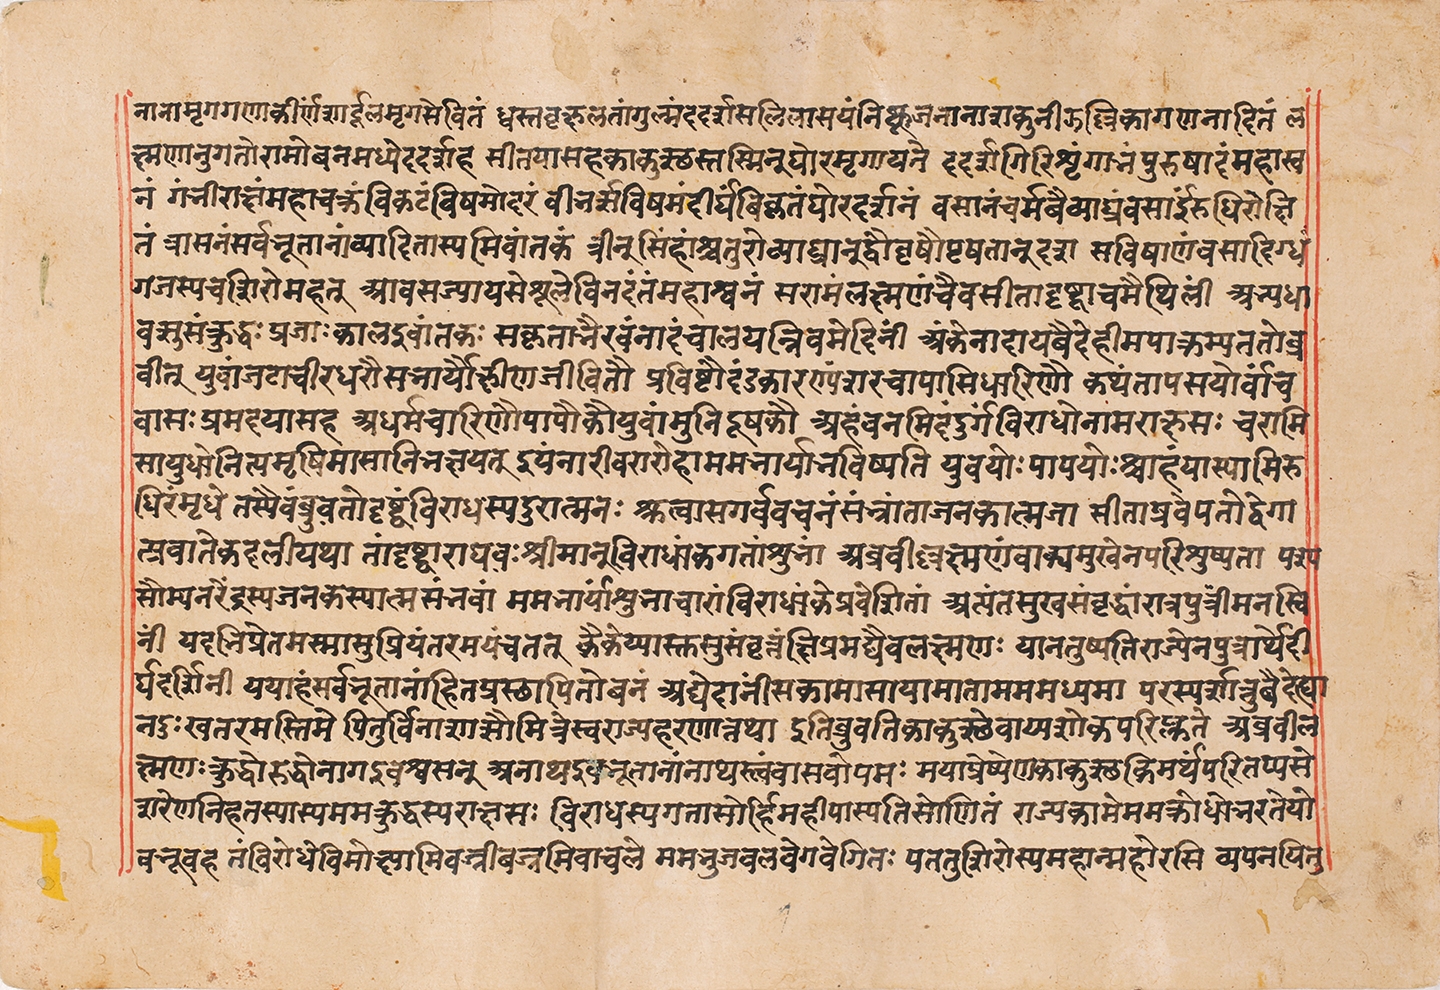 नानामृगगणाकीर्णंशार्दूलमृगसेवितं ध्वस्तवृक्षलतांगुल्मंददर्शसलिलासयंनिष्कूजनानाशकुनीझिल्लिकागणनादितं ल
क्ष्मणानुगतोरामोबनमध्येददर्शह सीतयासहकाकुस्थस्तस्मिन्घोरमृगायने ददर्शगिरिशृंगाभंपुरुषादंमहास्व
नं गंभीराक्षंमहावक्त्रंविकटंविषमोदरं बीभर्त्सविषमंदीर्घंबिकृतंघोरदर्शनं वसानंचर्मबैयाघ्रंवसार्द्रंरुधिरोक्षि
तं त्रासनंसर्वभूतानांव्यादितास्यमिवांतकं त्रीन्सिंहांश्चतुरोव्याघ्रान्द्वौवृषौपृषतान्दश सविषाणंवसादिग्धं
गजस्यचशिरोमहत् आवसज्यायसेशूलेविनदंतंमहाश्वनं सरामंलक्ष्मणंचैवसीतादृष्ट्वाचमैथिलीं अभ्यधा
वत्सुसंक्रुद्धः प्रजाःकालइवांतकः सकृतवाभैरवंनादंचालयन्निवमेदिनीं अंकेनादायबैदेहीमपाक्रम्यततोब्र
वीत् युवांजटाचीरधरौसभार्यौक्षीणजीवितौ प्रविष्टौदंडकारण्यंशरचापासिधारिणौ कथंतापसयोर्वांच
वासःप्रमदयासह अधर्मचारिणौपापौकौयुवांमुनिदूषकौ अहंबनमिदंदुर्गंविराधोनामराक्षसः चरामि
सायुधोनित्यमृषिमासानिभक्षयत् इयंनारीवरारोहाममभार्याभविष्यति युवयोःपापयोःश्चाहंपास्यामिरु
धिरंमृधे तस्यैवंब्रुवतोदृष्टंविराधस्यदुरात्मनः श्रुत्वासगर्वंवचनंसंभ्रांताजनकात्मजा सीताप्रवेपतोद्वेगा
त्प्रवातेकदलीयथा तांदृष्ट्वाराघवःश्रीमान्विराधांकगतांशुभां अब्रवील्लक्ष्मणंवाक्यमुखेनपरिशुष्यता पश्य
सौम्यनरेंद्रस्यजनकस्यात्मसंभवां ममभार्यांशुभाचारांविराधांकेप्रवेशितां अत्यंतसुखसंवृद्धांराजपुत्रींमनस्वि
नीं यदभिप्रेतमस्मासुप्रियंतरमयंचतत् कैकेय्यास्तसुसंवृत्तंक्षिप्रमद्यैवलक्ष्मणः यानतुष्यतिराज्येनपुत्रार्थेदी
र्घदर्शिनी ययाहंसर्वभूतानांहितप्रस्छापितोबनं अद्येदानींसकामासायामातामममध्यमा परस्पर्शात्तुबैदेह्या
नदुःखतरमस्तिमे पितुर्विनाशात्सौमित्रेस्वराज्यहरणात्तथा इतिब्रुवतिकाकुस्छेवाय्पशोकपरिप्लुते अब्रवील
क्ष्मणःक्रुद्धोरुद्धोनागइवश्वसन् अनाथइवभूतानांनाथस्त्वंवासवोपमः मयाप्रेष्येणकाकुस्छकिमर्थंपरितप्यसे
शरेणनिहतस्यास्यममक्रुद्धस्यराक्षसः विराधस्यगतासोर्हिमहीपास्यतिसोणितं राज्यकामेममक्रोधोभरतेयो
बभूवह तंविरोधेविमोक्ष्यामिवज्रीबज्रमिवाचले ममभुजबलवेगवेगितः पततुशिरोस्यमहान्महोरसि व्यपनयितु